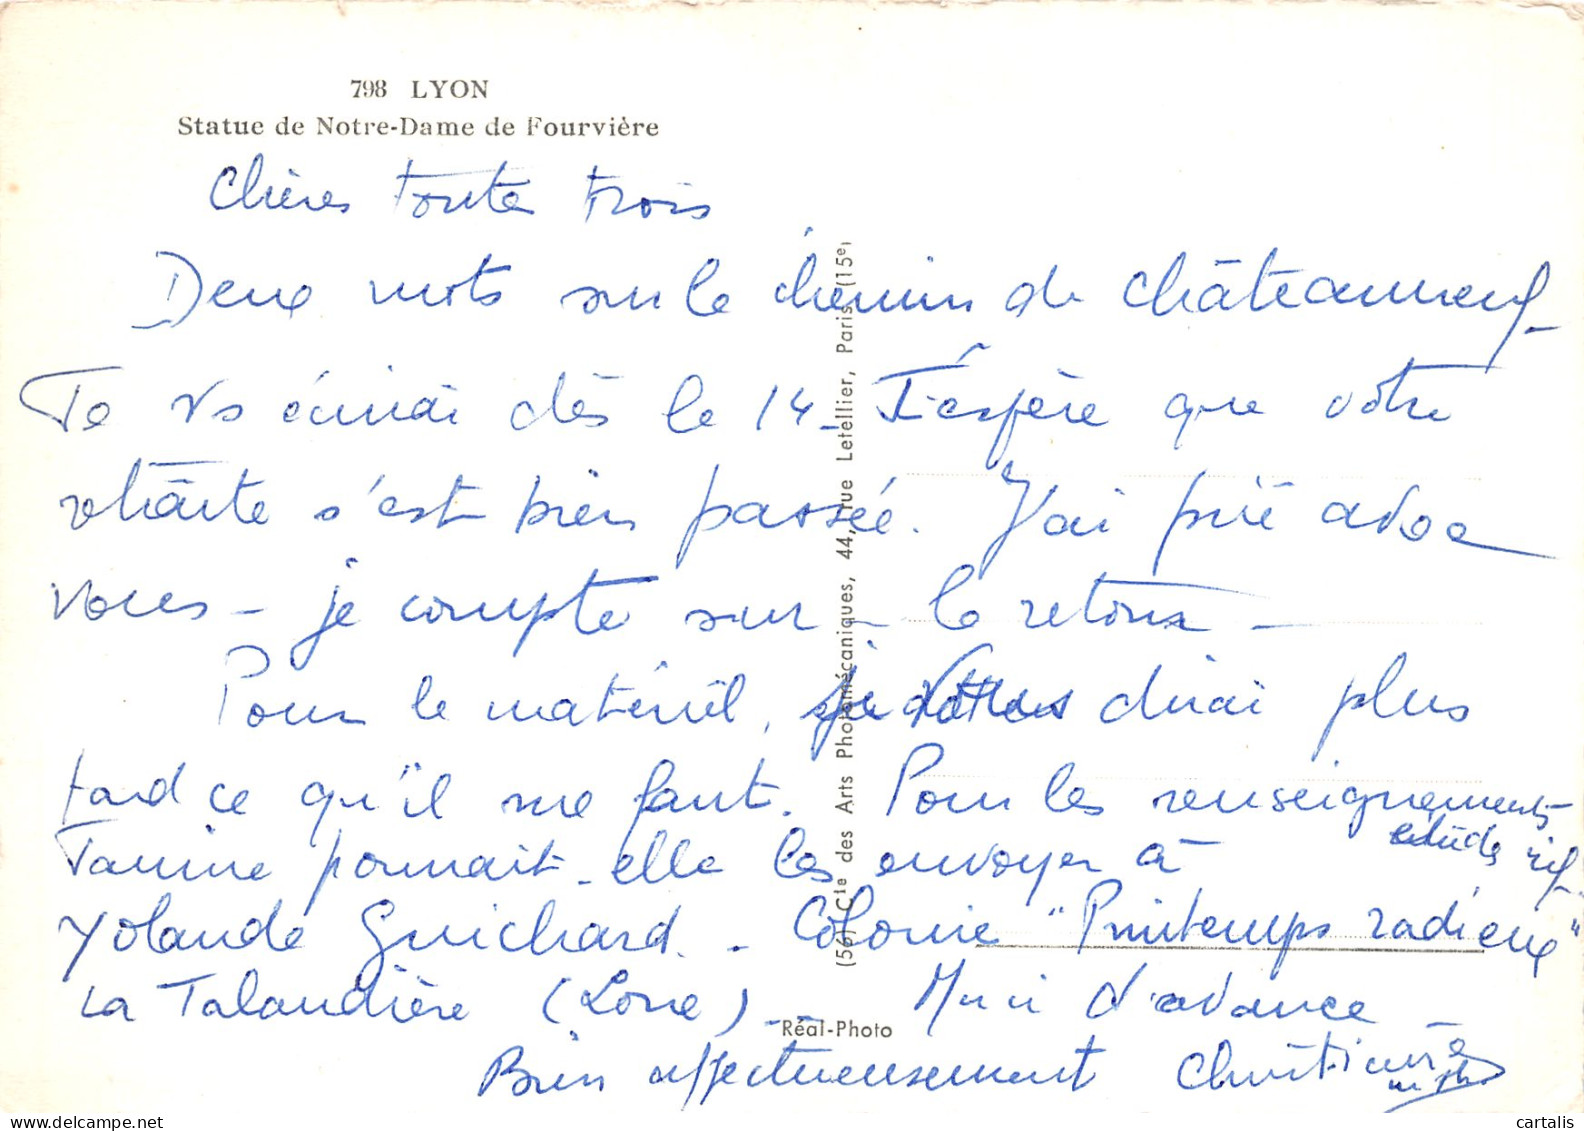 798 LYON
Statue de Notre-Dame de Fourvière
Chères toute trois
Deux mots sur le chemin de Châteauneuf_
Je vs écrirai dès le 14_ J'espère que votre
retraite s'est bien passée. J'ai prié avec
vous _ je compte sur _ le retour _
Pour le matériel, je vous dirai plus
tard ce qu'il me faut. Pour les renseignements
Janine pourrait-elle les envoyer à
Yolande Guichard. _ Colonie "Printemps radieux"
La Talaudière (Loire) _ Merci d'avance _
Bien affectueusement Christiane
(56) Cie des Arts Photomécaniques, 44, rue Letellier, Paris (15e)
Réal-Photo
www.delcampe.net
cartalis